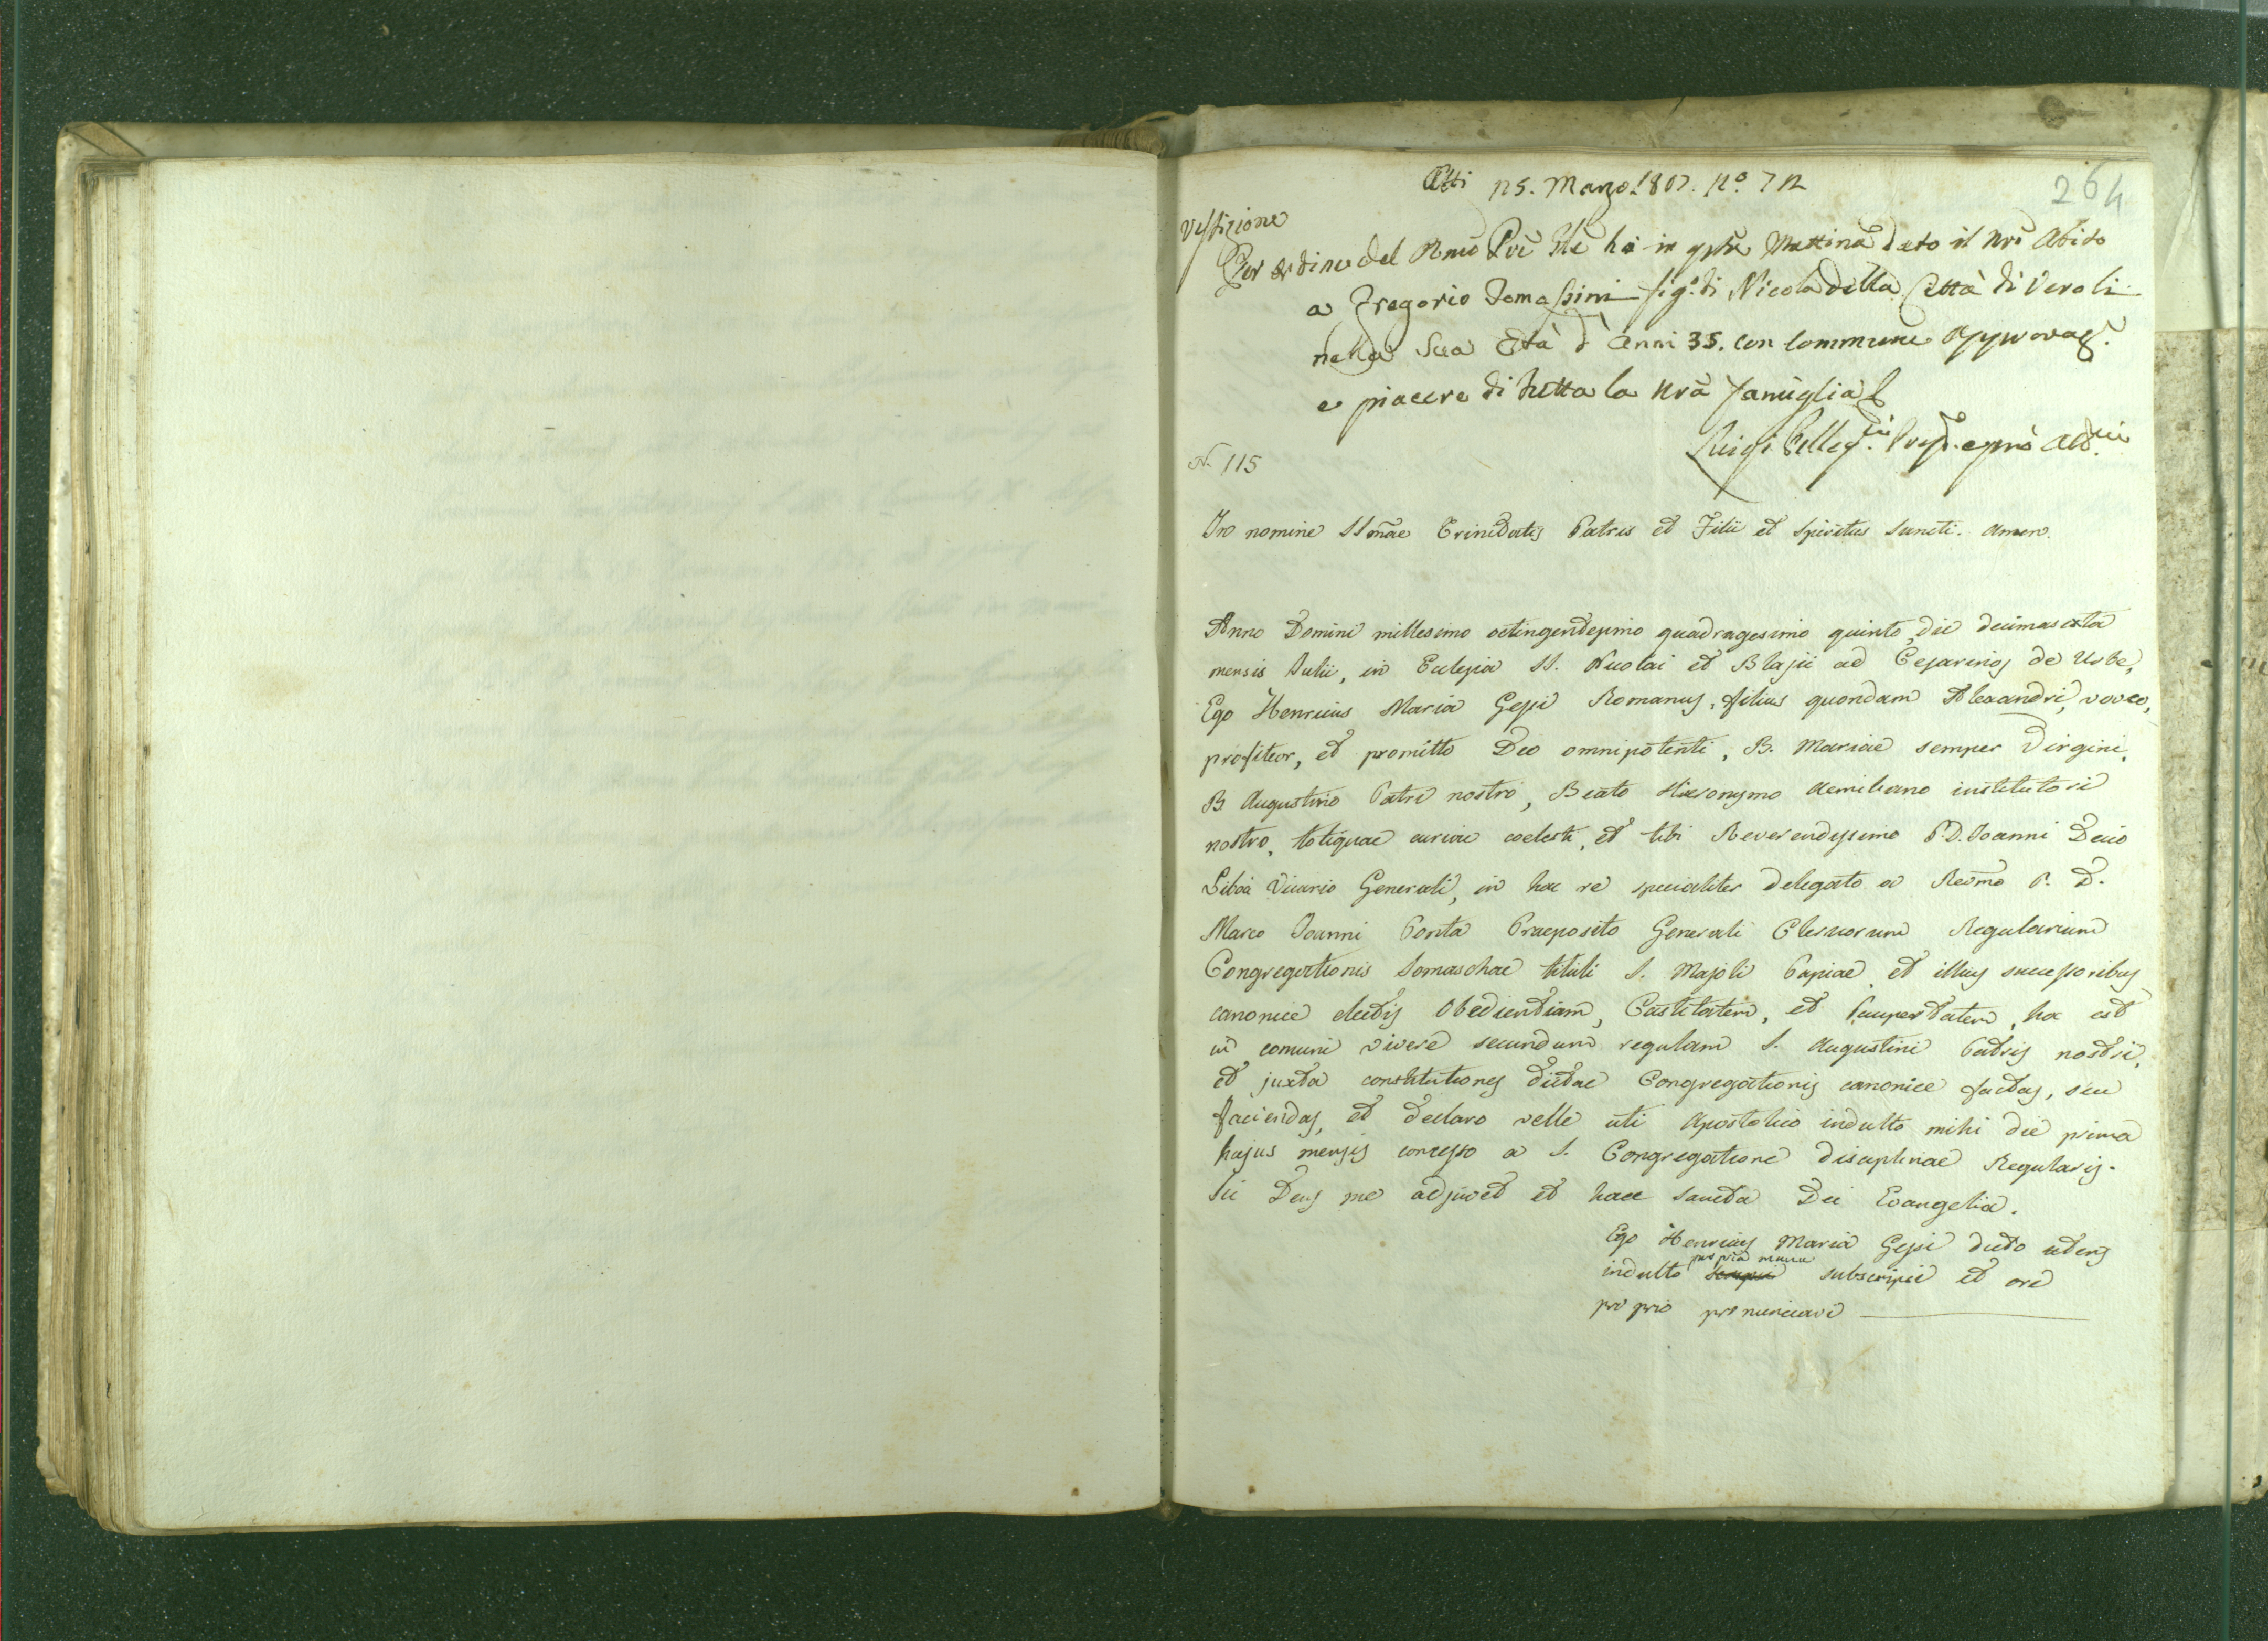 264
Atti 25. Marzo. 1807. N.º 72
Vestizione
Per ordine del Rmo Pre Gle ho in qsta Mattina dato il nrõ Abito
a Gregorio Tomassini fig.º di Nicola della Città di Veroli
nella Sua Età d'Anni 35. con Commune Approvaz.e
e piacere di tutta la nrã famiglia
Luigi
N. 115
In nomine SSmae Trinitatis Patris et Filii et Spiritus Sancti. Amen.
Anno Domini millesimo octingentesimo quadragesimo quinto, die decimasexta
mensis Julii, in Ecclesia SS. Nicolai et Blasii ad Cesarinos de Urbe,
Ego Henricus Maria Gessi Romanus, filius quondam Alexandri, voveo,
profiteor, et promitto Deo omnipotenti, B. Mariae semper Virgini,
B. Augustino Patri nostro, Beato Hieronymo Aemiliano institutori
nostro, totique curiae coelesti, et tibi Reverendissimo P. D. Joanni Decio
Libóa Vicario Generali, in hac re specialiter delegato a Revmo P. D.
Marco Joanni Ponta Praeposito Generali Clericorum Regularium
Congregationis Somaschae tituli S. Majoli Papiae, et illius successoribus
canonice electis Obedientiam, Castitatem, et Paupertatem, hoc est
in comuni vivere secundum regulam S. Augustini Patris nostri,
et juxta constitutiones dictae Congregationis canonice factas, seu
faciendas, et declaro velle uti Apostolico indulto mihi die prima
hujus mensis concesso a S. Congregatione disciplinae Regularis.
Sic Deus me adjuvet et haec Sancta Dei Evangelia.
Ego Henricus Maria Gessi dicto utens
indulto propria manu subscripsi et ore
proprio pronunciavi